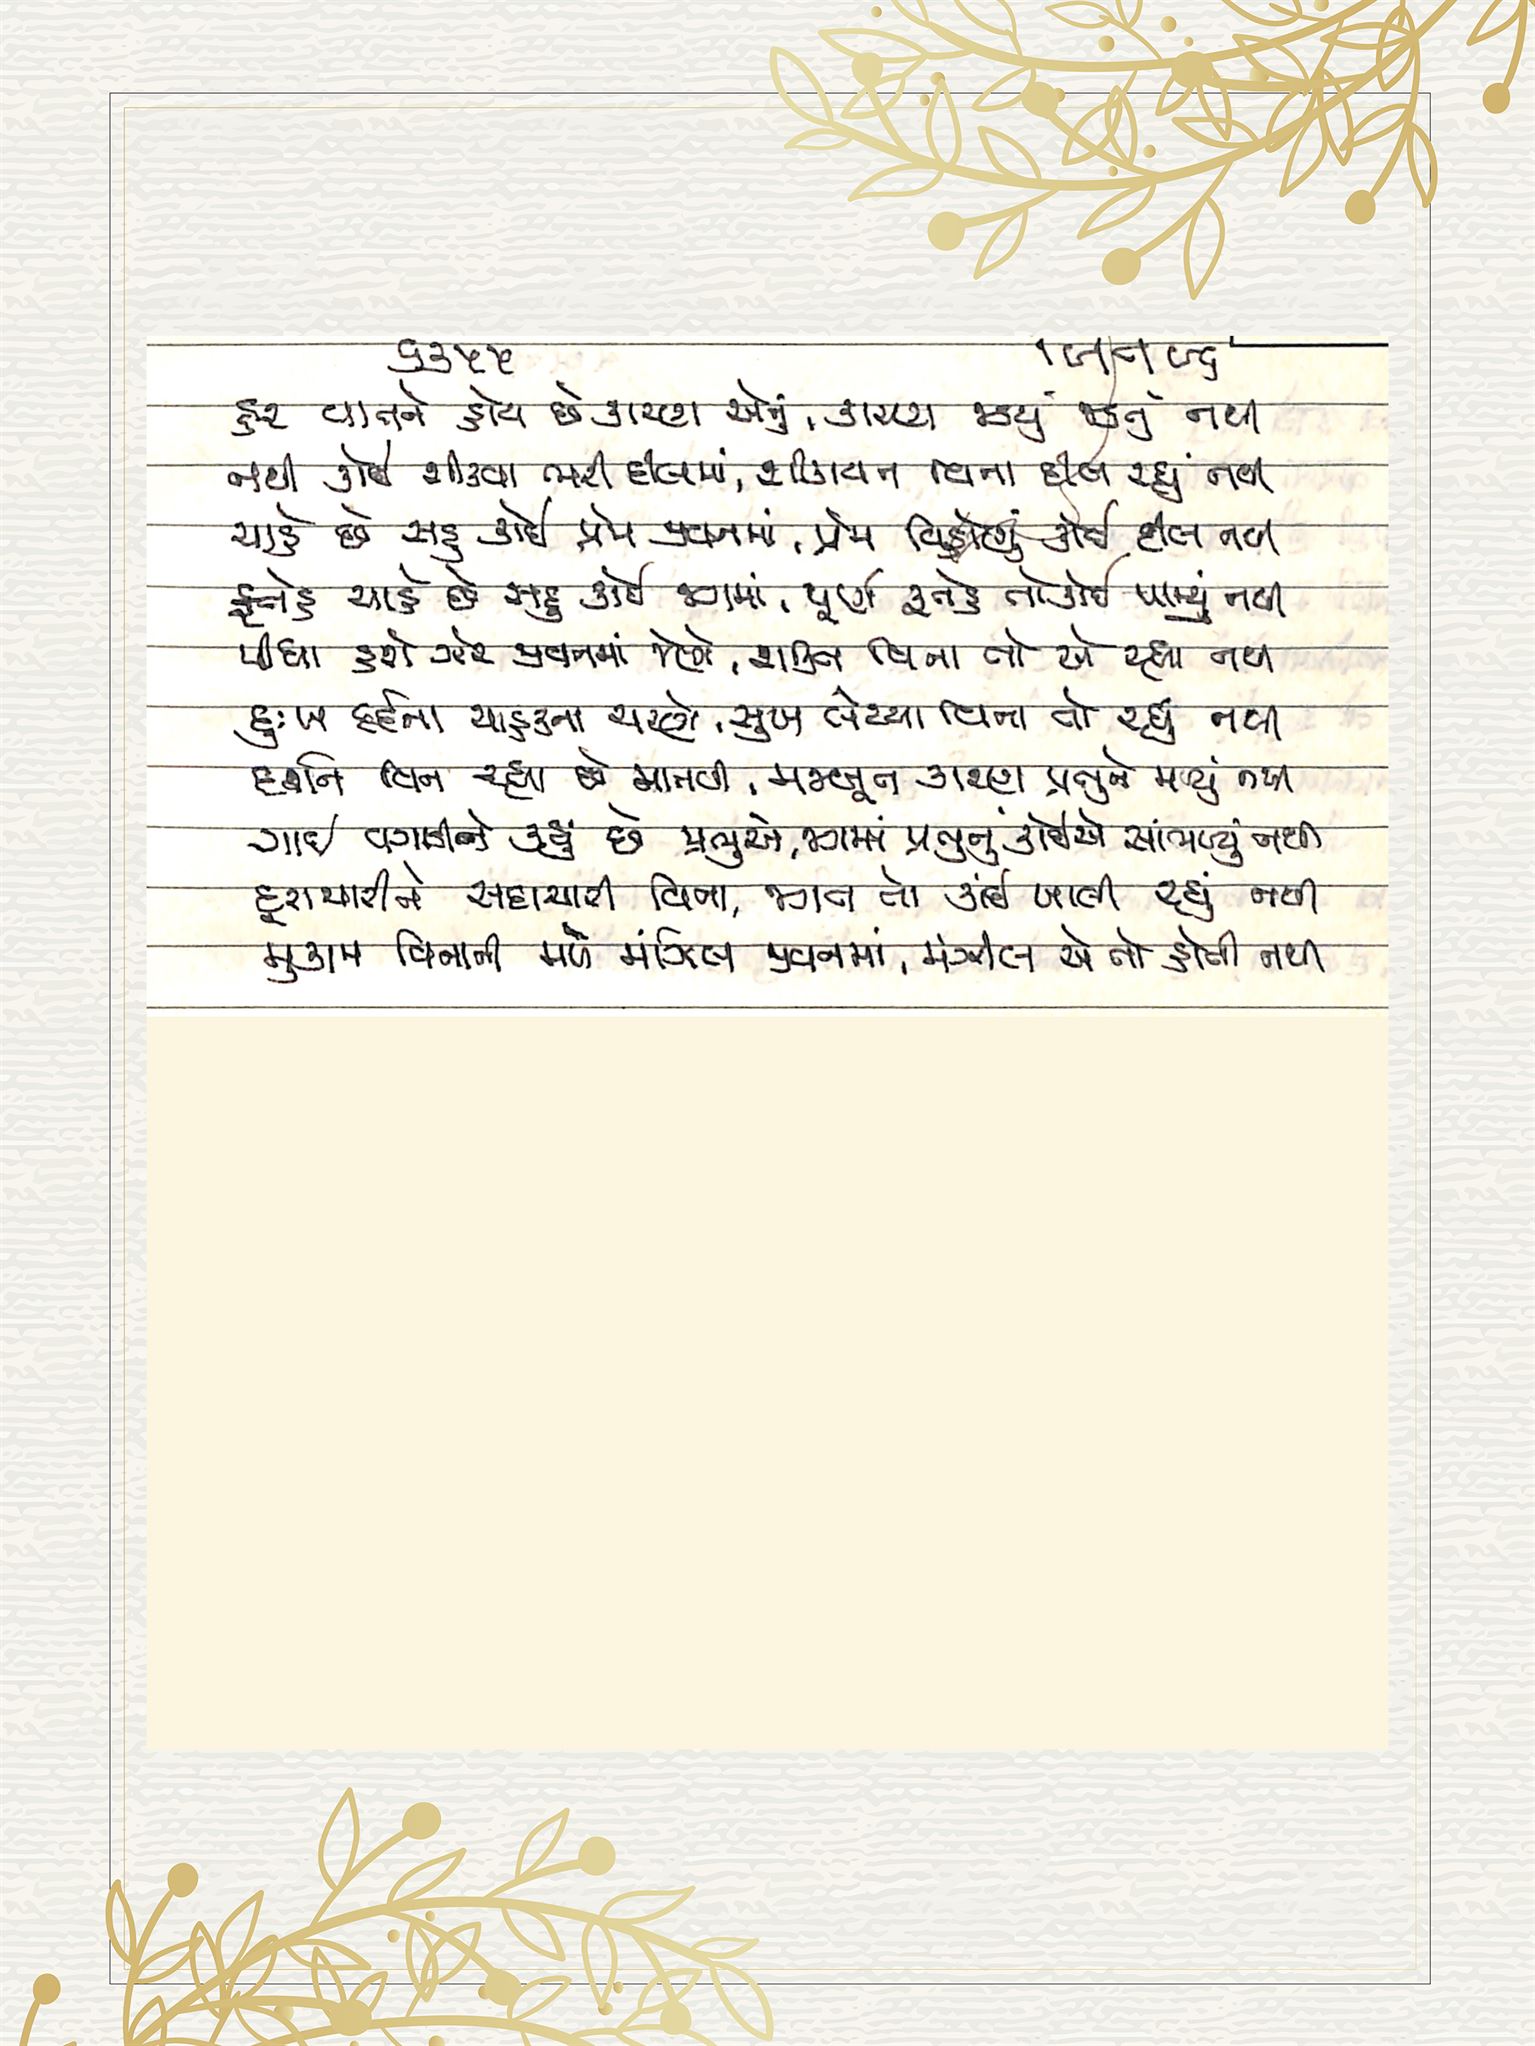 ૬૩૫૫
હર વાતને હોય છે કારણ એનું, કારણ જડયું જડતું નથી
નથી કોઈ શીકવા ભરી દીલમાં, શીકાયત વિના દીલ રહ્યું નથી
ચાહે છે સહુ કોઈ પ્રેમ જીવનમાં, પ્રેમ વિહોણું કોઈ દીલ નથી
સ્નેહ ચાહે છે સહુ કોઈ જગમાં, પૂર્ણ સ્નેહ તો કોઈ પામ્યું નથી
પીધા હશે ઝેર જીવનમાં જેણે, શક્તિ વિના તો એ રહ્યા નથી
દુઃખ દર્દના ચાહકના ચરણે, સુખ લેટયા વિના તો રહ્યું નથી
દર્શન વિન રહ્યા છે માનવી, મજબૂત કારણ પ્રભુને મળ્યું નથી
ગાઈ વગાડીને કહ્યું છે પ્રભુએ, જગમાં પ્રભુનું કોઈએ સાંભળ્યું નથી
દૂરાચારીને સદાચારી વિના, જગત તો કાંઈ ખાલી રહ્યું નથી
મુકામ વિનાની મળે મંઝિલ જીવનમાં, મંઝીલ એ તો હોતી નથી